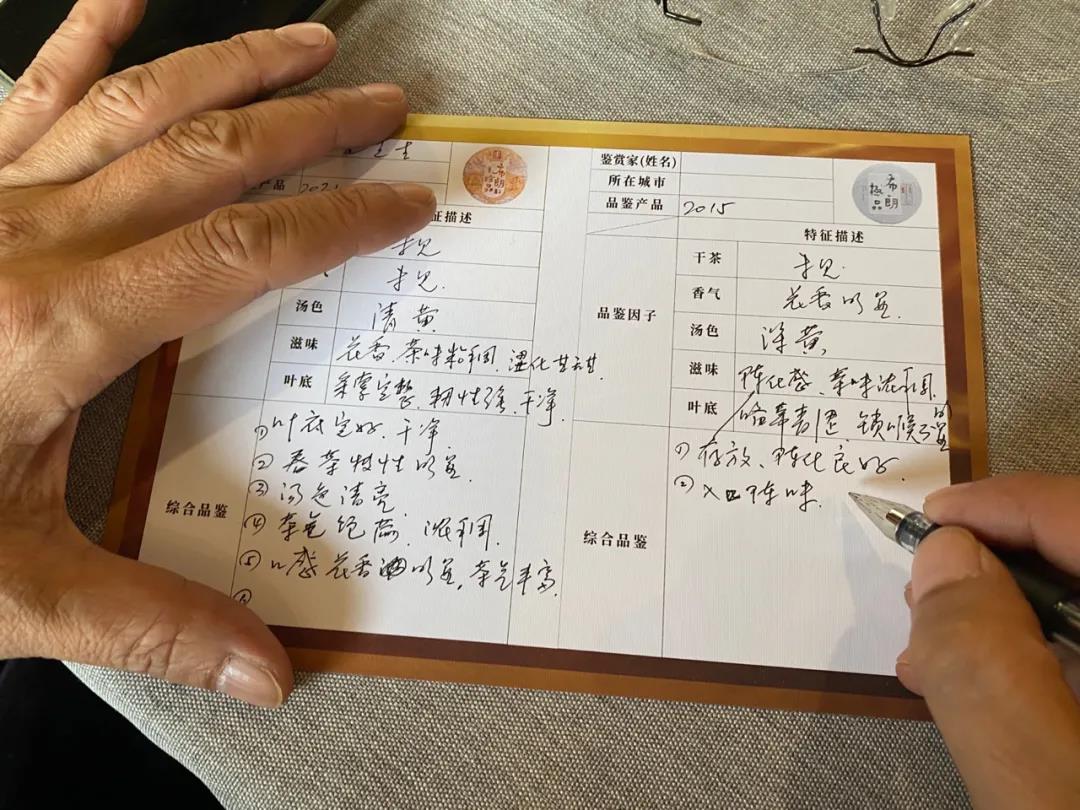 产品 2021
征描述
未见
未见.
汤色 清黄
滋味 花香.茶味
叶底 完整.韧性强.干净.
综合品鉴
①叶底完好.干净
②春茶特性明显.
③汤色清亮.
④茶气饱满.
⑤口感花香明显,茶气丰富.
⑥
希朗
鉴赏家(姓名)
所在城市
品鉴产品 2015
希朗極品
特征描述
品鉴因子
干茶 未见.
香气 花香明显.
汤色 深黄
滋味 陈化感、茶味
叶底 锁喉
综合品鉴
①存放、陈化良好
②入口陈味.